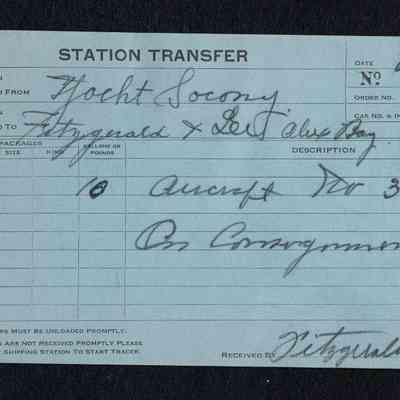 STATION TRANSFER
DATE
No.
FROM Yacht Socony
ORDER NO.
CAR NO. & IN
TO Fitzgerald & Lee Alex Bay
PACKAGES GALLONS OR POUNDS DESCRIPTION
SIZE KIND
10 Aircraft No 3
On Consignmen
RS MUST BE UNLOADED PROMPTLY.
S ARE NOT RECEIVED PROMPTLY PLEASE
SHIPPING STATION TO START TRACER.
RECEIVED BY Fitzgerald